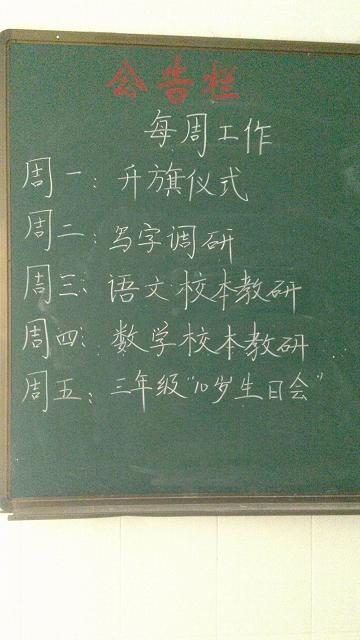 公告栏
每周工作
周一：升旗仪式
周二：写字调研
周三：语文校本教研
周四：数学校本教研
周五：三年级“10岁生日会”